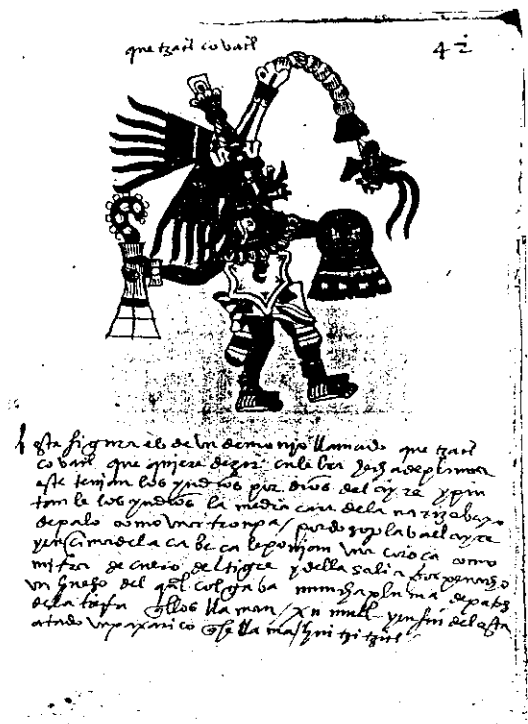 que tzalcovatl
42
esta figura es de un demonyo llamado que tzal
covatl que quiere dezir culebra
este tenian los yndios por dios del ayre y pin
tan le los yndios la media cara de la nariz abaxo
de palo como una trompa / por do soplava el ayre
y encima de la cabeça le ponian una coroça como
mitra de cuero de tigre y della salia por penacho
un hueso del qual colgava mucha pluma de patos
de la tierra ellos llaman / xumutl y en fin del esta
atado un paxarico que se llama huitzitzil